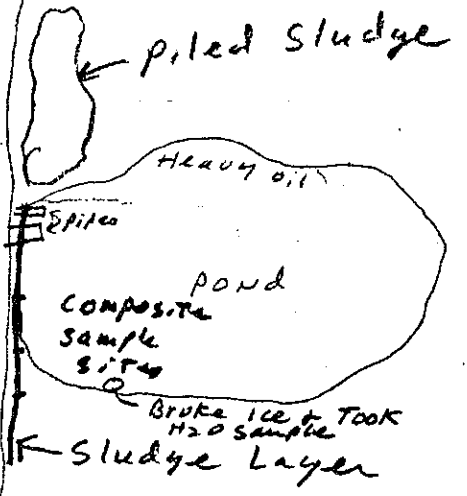 Piled Sludge
Heavy oil
Pipes
POND
Composite
Sample
Sites
Broke Ice & TOOK
H2O Sample
Sludge Layer